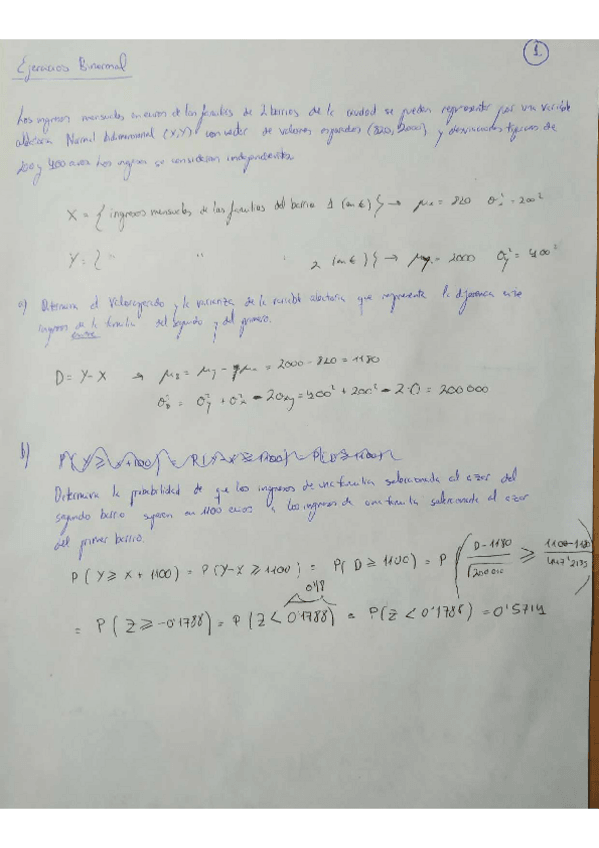 1.
Ejercicios Binormal
Los ingresos mensuales en euros de las familias de 2 barrios de la ciudad se pueden representar por una variable
aleatoria Normal bidimensional (X,Y) con vector de valores esperados (820, 2000) y desviaciones típicas de
200 y 400 euros. Los ingresos se consideran independientes.
X = { ingresos mensuales de las familias del barrio 1 (en €) } → μx = 820 σx² = 200²
Y = { " " " 2 (en €) } → μy = 2000 σy² = 400²
a) Determina el valor esperado y la varianza de la variable aleatoria que representa la diferencia entre
ingresos de la familia del segundo y del primero.
D = Y-X → μD = μy - μx = 2000 - 820 = 1180
σD² = σy² + σx² - 2σxy = 400² + 200² - 2·0 = 200 000
b)
Determina la probabilidad de que los ingresos de una familia seleccionada al azar del
segundo barrio superen en 1100 euros a los ingresos de una familia seleccionada al azar
del primer barrio.
P( Y ≥ X + 1100 ) = P(Y-X ≥ 1100) = P( D ≥ 1100 ) = P ( D-1180 / √200 000 ≥ 1100-1180 / 447'2135 )
0'18
= P( Z ≥ -0'1788 ) = P( Z < 0'1788 ) = P( Z < 0'1788 ) = 0'5714